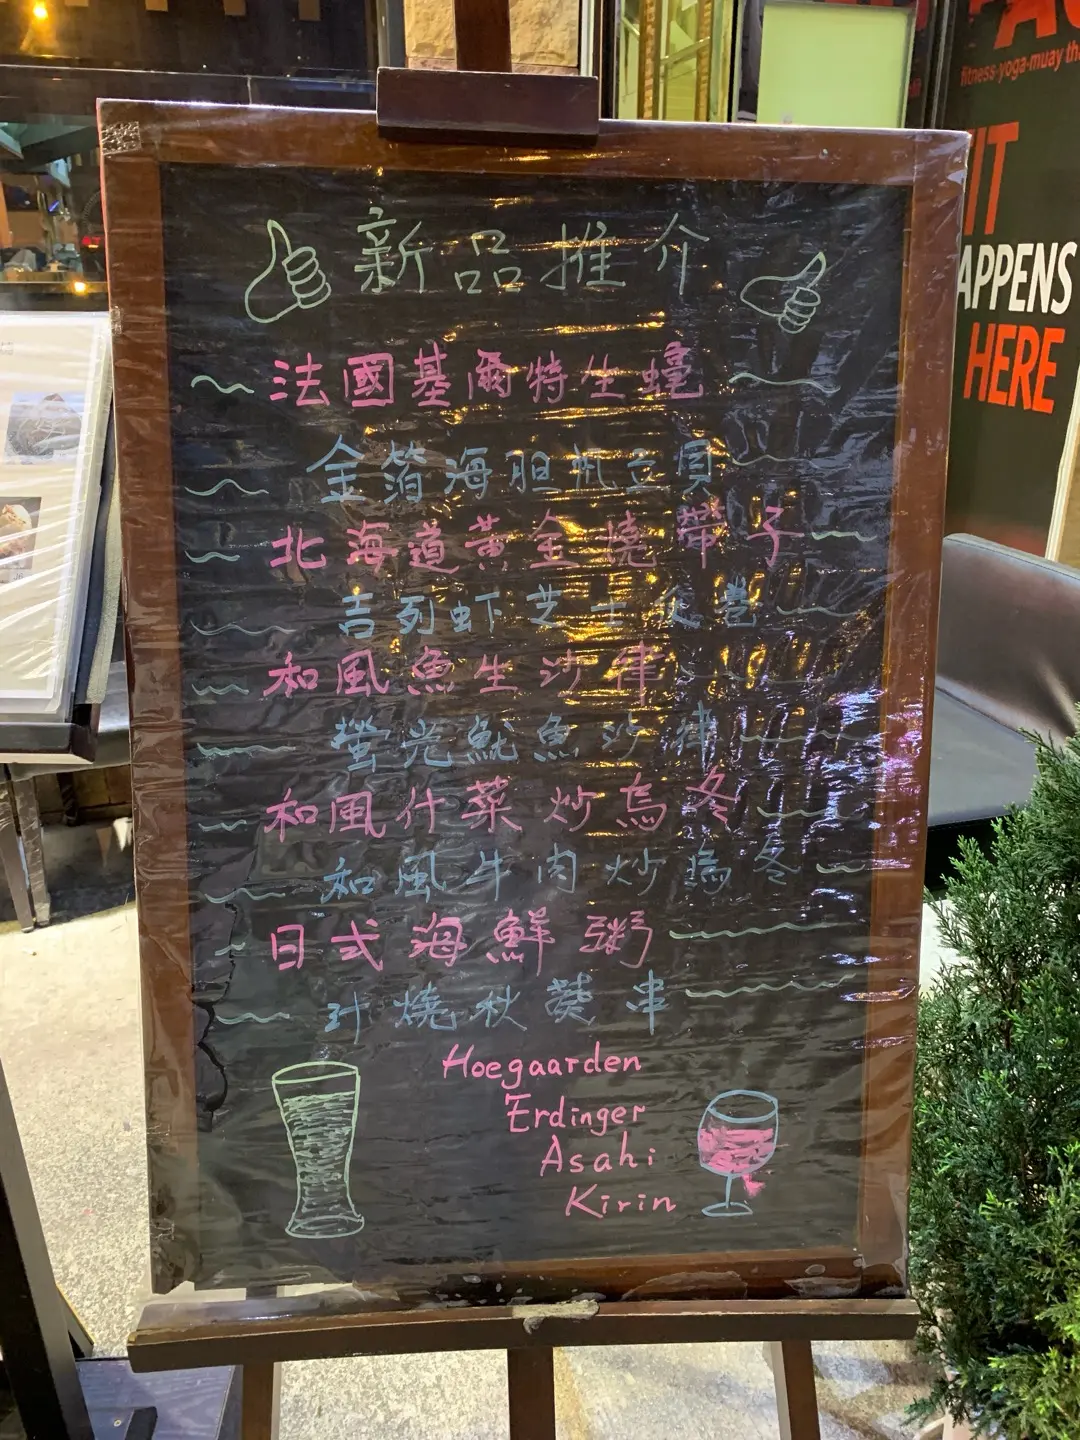 新品推介
法國基爾特生蠔
金箔海胆帆立貝
北海道黃金燒帶子
吉列虾芝士火卷
和風魚生沙律
螢光魷魚沙律
和風什菜炒烏冬
和風牛肉炒烏冬
日式海鮮粥
汁燒秋葵串
Hoegaarden
Erdinger
Asahi
Kirin
fitness-yoga-muay th
IT
APPENS
HERE